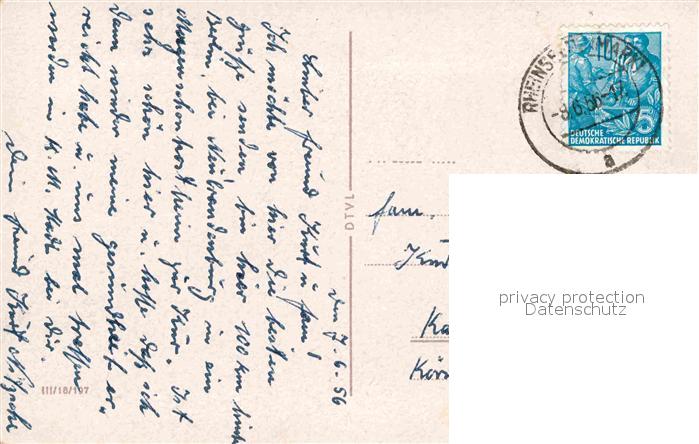 den 7.6.56
Lieber Freund Kurt u. fam!
Ich möchte von hier die besten
Grüße senden bin hier 100 km hinter
Berlin, bei Neubrandenburg in ein
Magenschonkostheim zur Kur. Ist
sehr schön hier u. hoffe daß ich
dann wieder meine Gesundheit er„
reicht habe u. uns mal treffen
werden in K. M. Stadt bei Dir.
Dein Freund Kurt
III/18/197
DTVL
fam.
Kurt
Ka
Körn
RHEINSBERG (MARK)
-8.6.56-17
a
DEUTSCHE
DEMOKRATISCHE REPUBLIK
10
privacy protection
Datenschutz